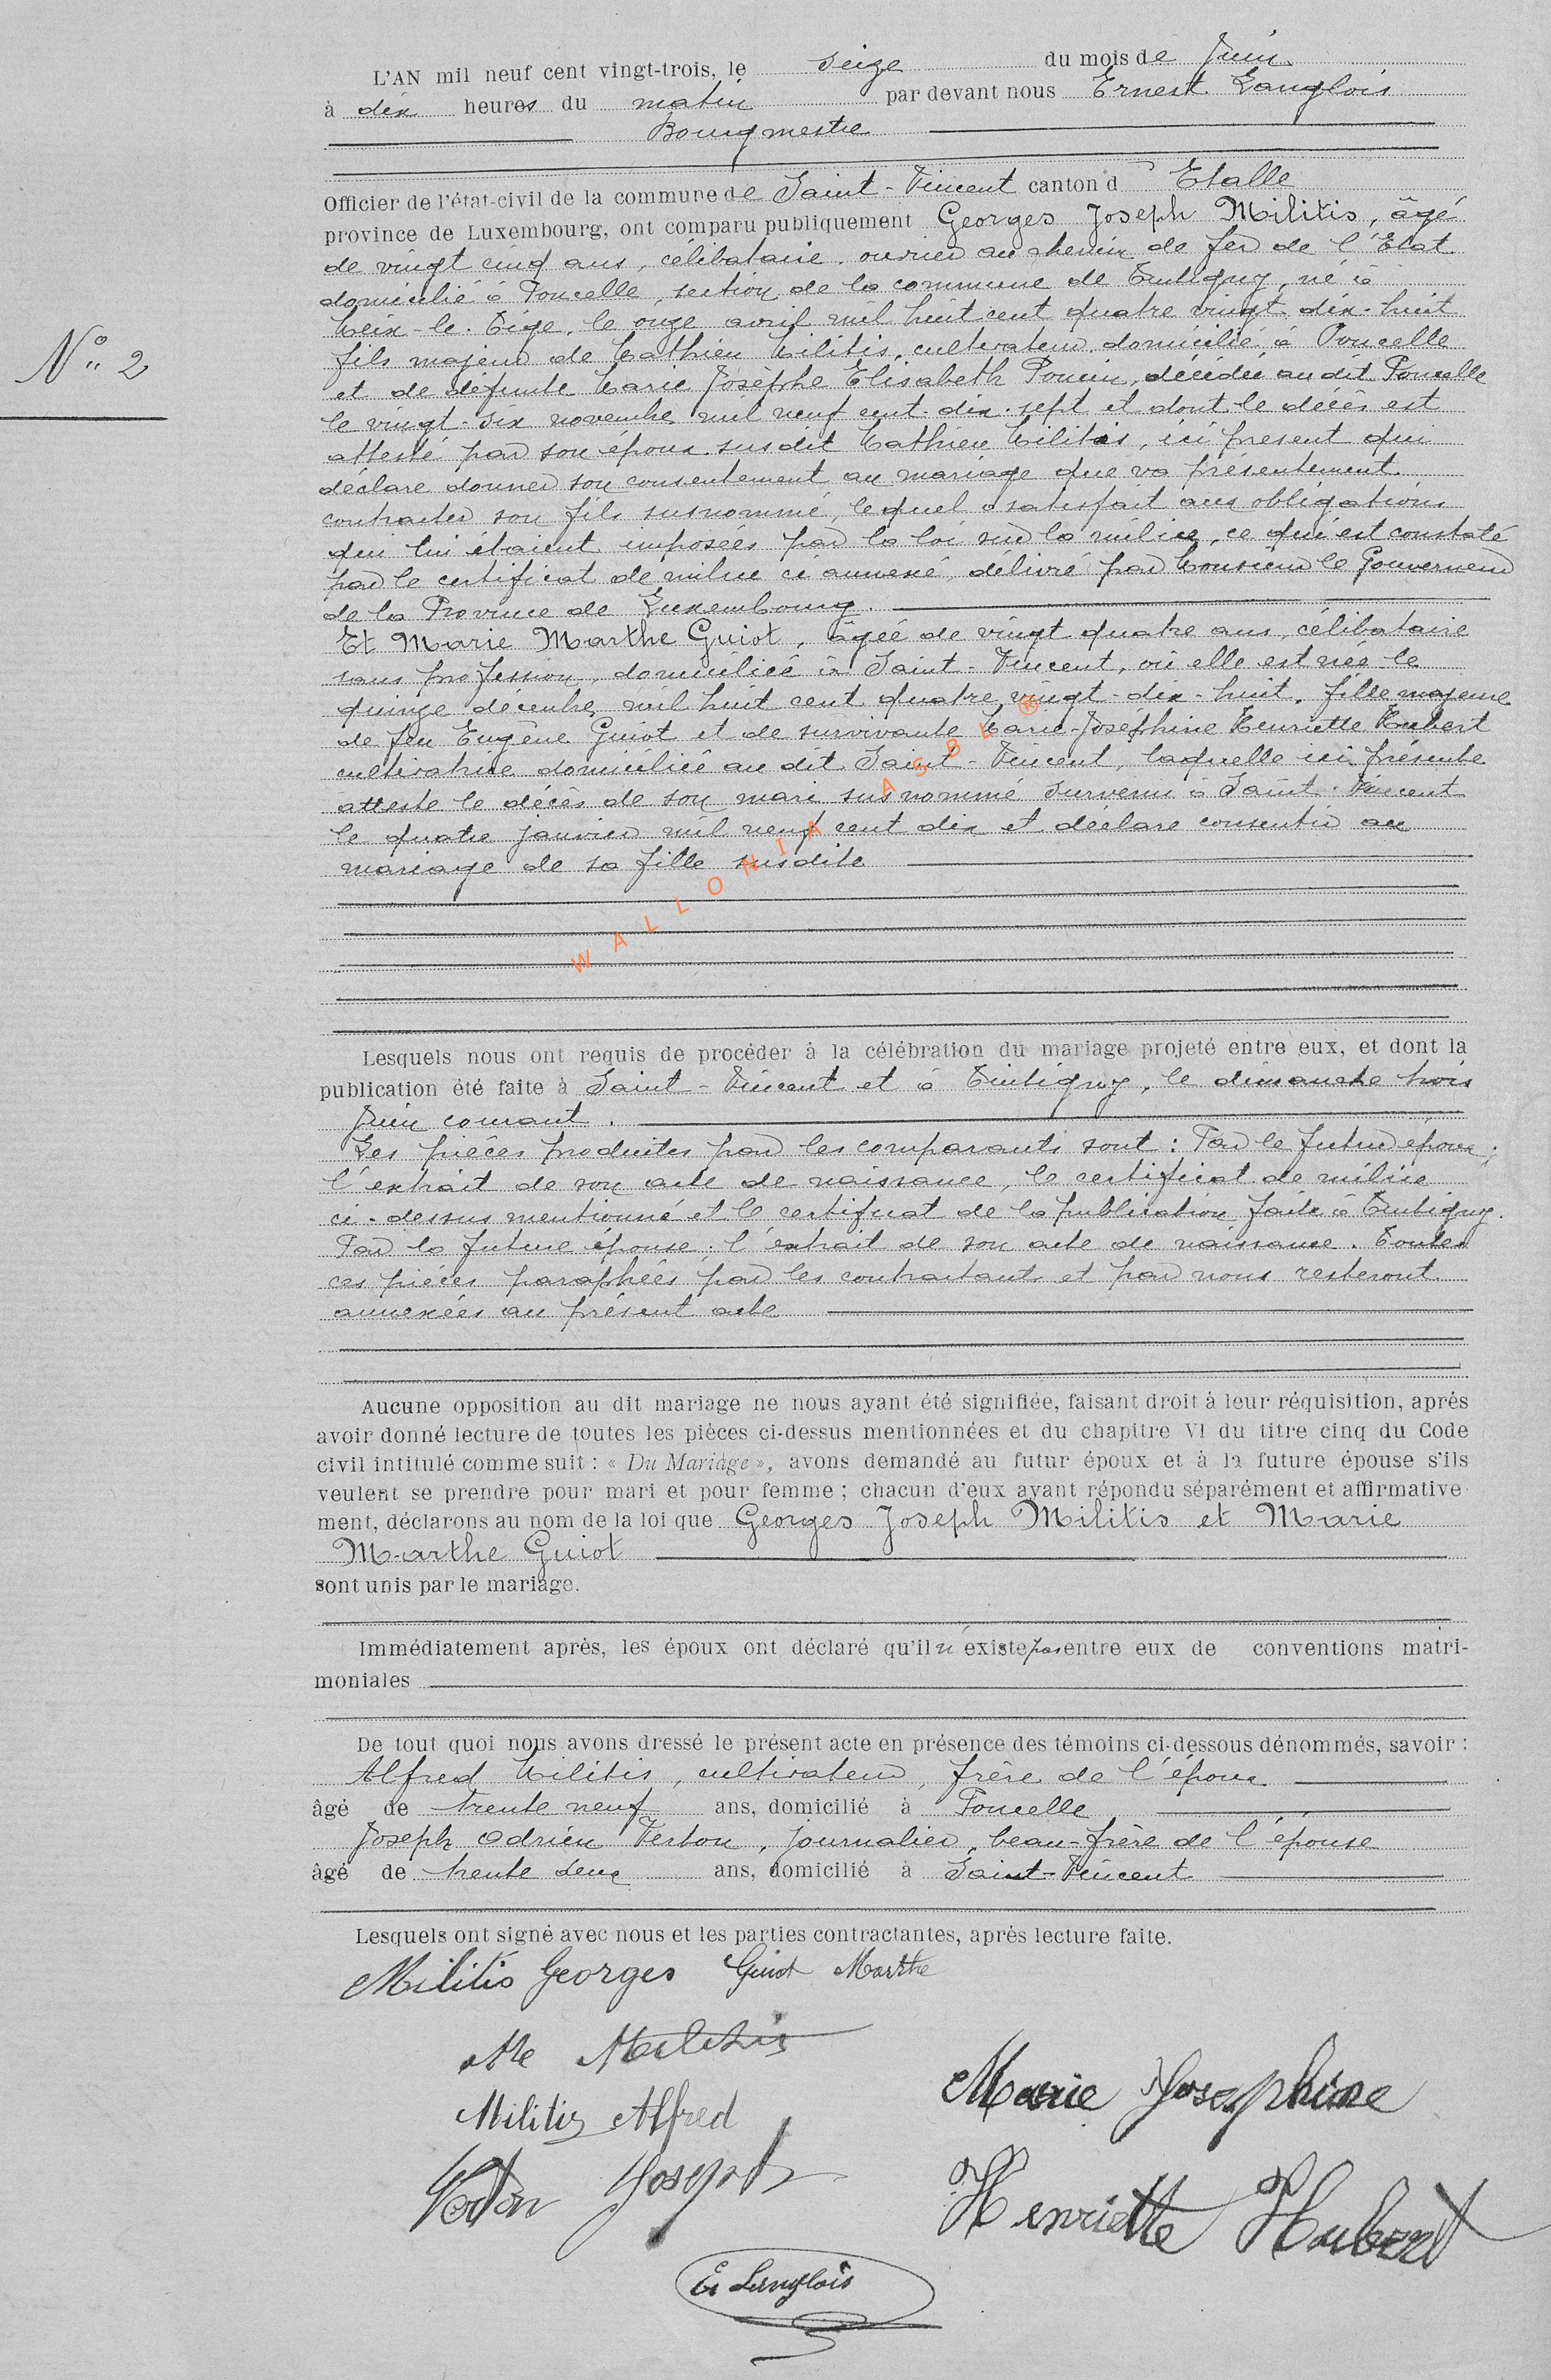 L'AN mil neuf cent vingt-trois, le seize du mois de Juin
à dix heures du matin par devant nous Ernest Langlois
Bourgmestre
Officier de l'état-civil de la commune de Saint-Vincent canton d'Etalle
province de Luxembourg, ont comparu publiquement Georges Joseph Militis, âgé
de vingt cinq ans, célibataire, ouvrier au chemin de fer de l'Etat
domicilié à Poncelle, section de la commune de Tintigny, né à
Meix-le-Tige, le onze avril mil huit cent quatre vingt-dix-huit
fils majeur de Mathieu Militis, cultivateur, domicilié à Poncelle
et de défunte Marie Josèphe Elisabeth Poncin, décédée au dit Poncelle
le vingt-six novembre mil neuf cent-dix-sept et dont le décès est
attesté par son époux susdit Mathieu Militis, ici présent qui
déclare donner son consentement au mariage que va présentement
contracter son fils susnommé, lequel a satisfait aux obligations
qui lui étaient imposées par la loi sur la milice, ce qui est constaté
par le certificat de milice ci annexé, délivré par Monsieur le Gouverneur
de la Province de Luxembourg.
Et Marie Marthe Guiot, âgée de vingt quatre ans, célibataire
sans profession, domiciliée à Saint-Vincent, où elle est née le
quinze décembre mil huit cent quatre vingt-dix-huit, fille majeure
de feu Eugène Guiot et de survivante Marie-Joséphine Henriette Hubert
cultivatrice domiciliée au dit Saint-Vincent, laquelle ici présente
atteste le décès de son mari susnommé survenu à Saint-Vincent
le quatre janvier mil neuf cent dix et déclare consentir au
mariage de sa fille susdite
WALLONIA ASBL ®
Lesquels nous ont requis de procéder à la célébration du mariage projeté entre eux, et dont la
publication été faite à Saint-Vincent et à Tintigny, le dimanche trois
Juin courant.
Les pièces produites par les comparants sont : Par le futur époux ;
l'extrait de son acte de naissance, le certificat de milice
ci-dessus mentionné et le certificat de la publication faite à Tintigny.
Par la future épouse : l'extrait de son acte de naissance. Toutes
ces pièces paraphées par les contractants et par nous resteront
annexées au présent acte
Aucune opposition au dit mariage ne nous ayant été signifiée, faisant droit à leur réquisition, après
avoir donné lecture de toutes les pièces ci-dessus mentionnées et du chapitre VI du titre cinq du Code
civil intitulé comme suit : « Du Mariage », avons demandé au futur époux et à la future épouse s'ils
veulent se prendre pour mari et pour femme ; chacun d'eux ayant répondu séparément et affirmative-
ment, déclarons au nom de la loi que Georges Joseph Militis et Marie
Marthe Guiot
sont unis par le mariage.
Immédiatement après, les époux ont déclaré qu'il n'existe pas entre eux de conventions matri-
moniales
De tout quoi nous avons dressé le présent acte en présence des témoins ci-dessous dénommés, savoir :
Alfred Militis, cultivateur, frère de l'époux
âgé de trente neuf ans, domicilié à Poncelle
Joseph Adrien Verton, journalier, beau-frère de l'épouse
âgé de trente deux ans, domicilié à Saint-Vincent
Lesquels ont signé avec nous et les parties contractantes, après lecture faite.
Militis Georges Guiot Marthe
Me Militis
Marie Josephine
Militis Alfred
Verton Joseph
Henriette Hubert
E. Langlois
N° 2